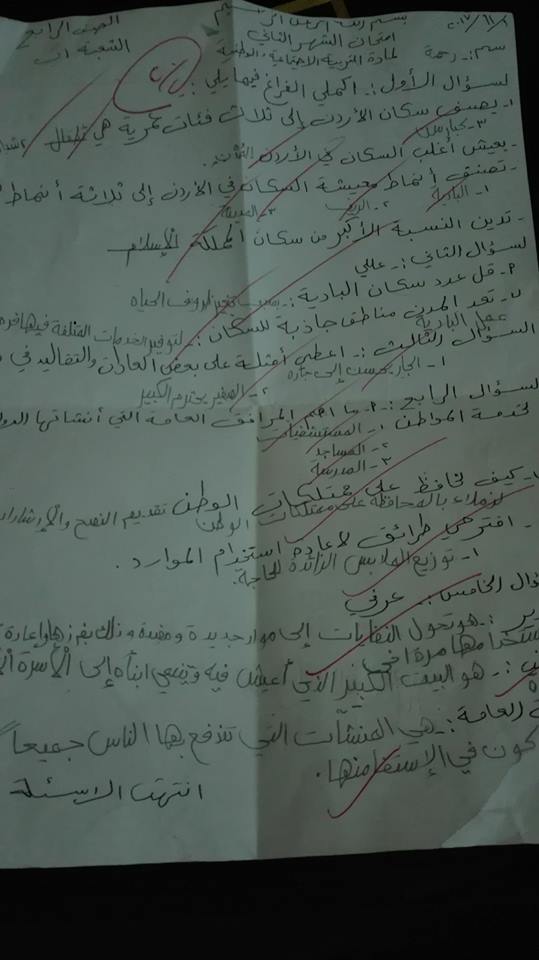 بسم الله الرحمن الرحيم
امتحان الشهر الثاني
لمادة التربية الاجتماعية والوطنية
الصف الرابع
الشعبة أ
٢٠١٧/١١/
سم:- رحمة
لسؤال الأول:- اكملي الفراغ فيما يلي:-
١- يصنف سكان الأردن إلى ثلاث فئات عمرية هي أطفال
٣- كبار سن
- يعيش أغلب السكان في الأردن المدن.
- تصنف أنماط معيشة السكان في الأردن إلى ثلاثة أنماط
١- البادية ٢- الريف ٣- المدينة
- تدين النسبة الأكبر من سكان المملكة الإسلام
لسؤال الثاني:- عللي
٩- قل عدد سكان البادية:- بسبب تغير ظروف الحياة
تعد المدن مناطق جاذبة للسكان:- لتوفير الخدمات المختلفة فيها
السؤال الثالث:- اعطي أمثلة على بعض العادات والتقاليد في
١- الجار يحسن إلى جاره ٢- الصغير يحترم الكبير
لسؤال الرابع:- ٩- ما اهم المرافق العامة التي أنشأتها الدو
لخدمة المواطن ١- المستشفيات
٢- المساجد
٣- المدرسة
- كيف نحافظ على ممتلكات الوطن تقديم النصح والإرشاد
لزملاء بالمحافظة على ممتلكات الوطن
- اقترحي طرائق لإعادة استخدام الموارد.
١- توزيع الملابس الزائدة للحاجة.
ؤال الخامس:- عرفي
ير:- هو تحول النفايات إلى موارد جديدة ومفيدة وذلك بفرزها وإعادة
ستخدامها مرة اخرى
:- هو البيت الكبير الذي أعيش فيه وينتمي ابناه إلى الأسرة
العامة:- هي المنشآت التي تنتفع بها الناس جميعاً
كون في الإستفا منها.
انتهت الاسئلة